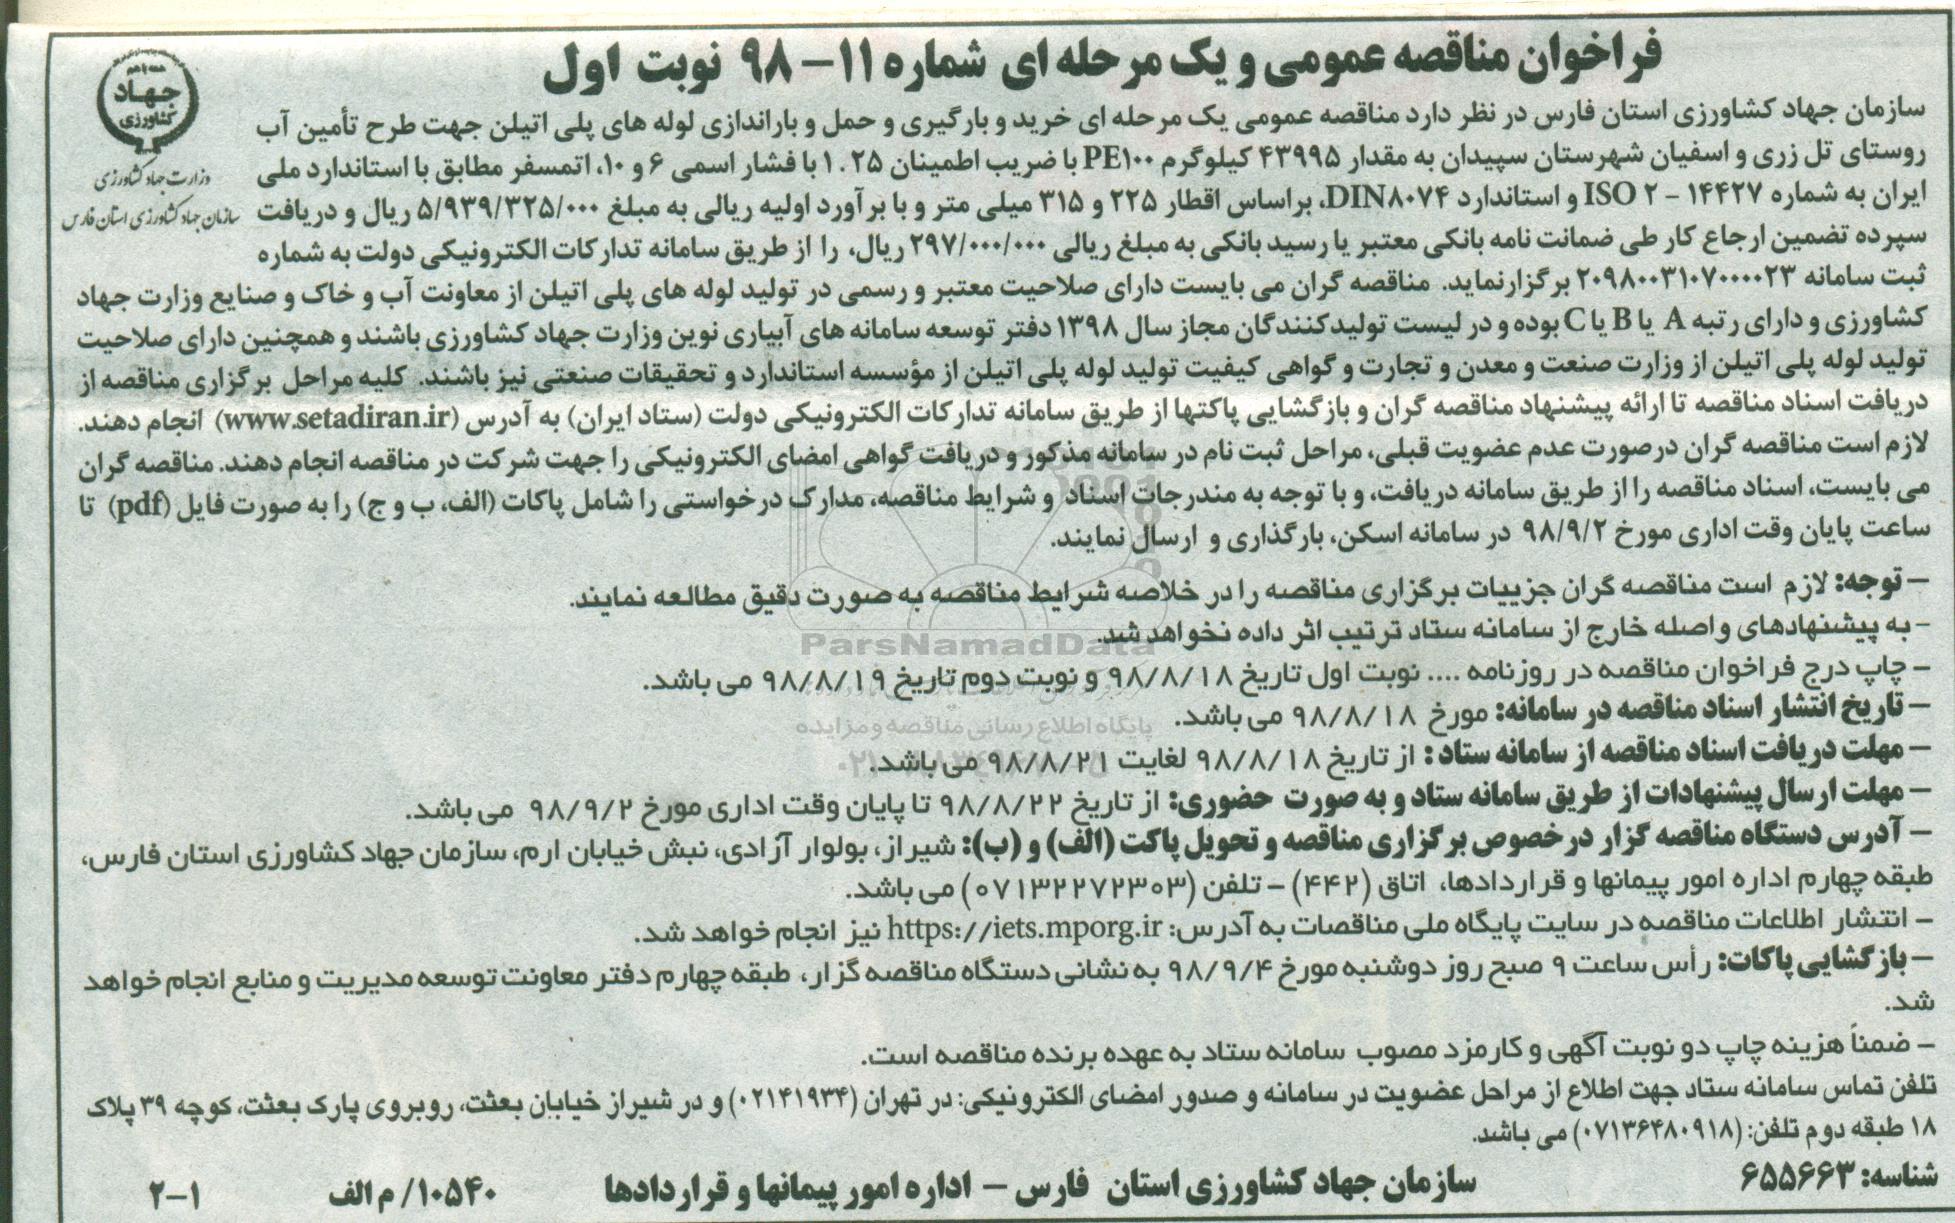 فراخوان مناقصه عمومی و یک مرحله ای شماره ۱۱-۹۸ نوبت اول
همه با هم
جهاد
کشاورزی
وزارت جهاد کشاورزی
سازمان جهاد کشاورزی استان فارس
سازمان جهاد کشاورزی استان فارس در نظر دارد مناقصه عمومی یک مرحله ای خرید و بارگیری و حمل و باراندازی لوله های پلی اتیلن جهت طرح تأمین آب
روستای تل زری و اسفیان شهرستان سپیدان به مقدار ۴۳۹۹۵ کیلوگرم PE۱۰۰ با ضریب اطمینان ۱.۲۵ با فشار اسمی ۶ و ۱۰، اتمسفر مطابق با استاندارد ملی
ایران به شماره ۱۴۴۲۷ - ۲ ISO و استاندارد DIN۸۰۷۴، براساس اقطار ۲۲۵ و ۳۱۵ میلی متر و با برآورد اولیه ریالی به مبلغ ۵/۹۳۹/۳۲۵/۰۰۰ ریال و دریافت
سپرده تضمین ارجاع کار طی ضمانت نامه بانکی معتبر یا رسید بانکی به مبلغ ریالی ۲۹۷/۰۰۰/۰۰۰ ریال، را از طریق سامانه تدارکات الکترونیکی دولت به شماره
ثبت سامانه ۲۰۹۸۰۰۳۱۰۷۰۰۰۰۲۳ برگزارنماید. مناقصه گران می بایست دارای صلاحیت معتبر و رسمی در تولید لوله های پلی اتیلن از معاونت آب و خاک و صنایع وزارت جهاد
کشاورزی و دارای رتبه A یا B یا C بوده و در لیست تولیدکنندگان مجاز سال ۱۳۹۸ دفتر توسعه سامانه های آبیاری نوین وزارت جهاد کشاورزی باشند و همچنین دارای صلاحیت
تولید لوله پلی اتیلن از وزارت صنعت و معدن و تجارت و گواهی کیفیت تولید لوله پلی اتیلن از مؤسسه استاندارد و تحقیقات صنعتی نیز باشند. کلیه مراحل برگزاری مناقصه از
دریافت اسناد مناقصه تا ارائه پیشنهاد مناقصه گران و بازگشایی پاکتها از طریق سامانه تدارکات الکترونیکی دولت (ستاد ایران) به آدرس (www.setadiran.ir) انجام دهند.
لازم است مناقصه گران درصورت عدم عضویت قبلی، مراحل ثبت نام در سامانه مذکور و دریافت گواهی امضای الکترونیکی را جهت شرکت در مناقصه انجام دهند. مناقصه گران
می بایست، اسناد مناقصه را از طریق سامانه دریافت، و با توجه به مندرجات اسناد و شرایط مناقصه، مدارک درخواستی را شامل پاکات (الف، ب و ج) را به صورت فایل (pdf) تا
ساعت پایان وقت اداری مورخ ۹۸/۹/۲ در سامانه اسکن، بارگذاری و ارسال نمایند.
- توجه: لازم است مناقصه گران جزییات برگزاری مناقصه را در خلاصه شرایط مناقصه به صورت دقیق مطالعه نمایند.
- به پیشنهادهای واصله خارج از سامانه ستاد ترتیب اثر داده نخواهد شد.
ParsNamadData
- چاپ درج فراخوان مناقصه در روزنامه .... نوبت اول تاریخ ۹۸/۸/۱۸ و نوبت دوم تاریخ ۹۸/۸/۱۹ می باشد.
- تاریخ انتشار اسناد مناقصه در سامانه: مورخ ۹۸/۸/۱۸ می باشد.
پایگاه اطلاع رسانی مناقصه و مزایده
- مهلت دریافت اسناد مناقصه از سامانه ستاد : از تاریخ ۹۸/۸/۱۸ لغایت ۹۸/۸/۲۱ می باشد.
- مهلت ارسال پیشنهادات از طریق سامانه ستاد و به صورت حضوری: از تاریخ ۹۸/۸/۲۲ تا پایان وقت اداری مورخ ۹۸/۹/۲ می باشد.
- آدرس دستگاه مناقصه گزار در خصوص برگزاری مناقصه و تحویل پاکت (الف) و (ب): شیراز، بولوار آزادی، نبش خیابان ارم، سازمان جهاد کشاورزی استان فارس،
طبقه چهارم اداره امور پیمانها و قراردادها، اتاق (۴۴۲) - تلفن (۰۷۱۳۲۲۷۲۳۰۳) می باشد.
- انتشار اطلاعات مناقصه در سایت پایگاه ملی مناقصات به آدرس: https://iets.mporg.ir نیز انجام خواهد شد.
- بازگشایی پاکات: رأس ساعت ۹ صبح روز دوشنبه مورخ ۹۸/۹/۴ به نشانی دستگاه مناقصه گزار، طبقه چهارم دفتر معاونت توسعه مدیریت و منابع انجام خواهد
شد.
- ضمناً هزینه چاپ دو نوبت آگهی و کارمزد مصوب سامانه ستاد به عهده برنده مناقصه است.
تلفن تماس سامانه ستاد جهت اطلاع از مراحل عضویت در سامانه و صدور امضای الکترونیکی: در تهران (۰۲۱۴۱۹۳۴) و در شیراز خیابان بعثت، روبروی پارک بعثت، کوچه ۳۹ پلاک
۱۸ طبقه دوم تلفن: (۰۷۱۳۶۴۸۰۹۱۸) می باشد.
شناسه: ۶۵۵۶۶۳
سازمان جهاد کشاورزی استان فارس - اداره امور پیمانها و قراردادها
۱۰۵۴۰/م الف
۲-۱